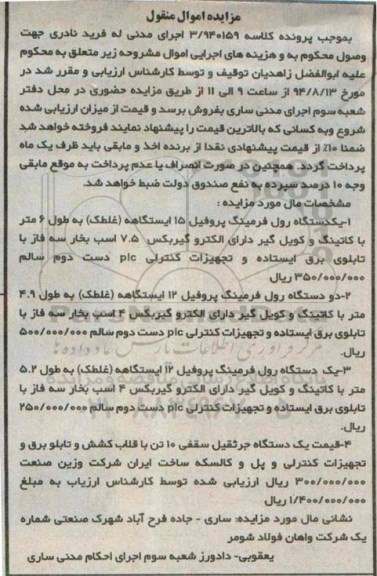 مزایده اموال منقول
بموجب پرونده کلاسه ۳/۹۴۰۱۵۹ اجرای مدنی له فرید نادری جهت
وصول محکوم به و هزینه های اجرایی اموال مشروحه زیر متعلق به محکوم
علیه ابوالفضل زاهدیان توقیف و توسط کارشناس ارزیابی و مقرر شد در
مورخ ۹۴/۸/۱۳ از ساعت ۹ الی ۱۱ از طریق مزایده حضوری در محل دفتر
شعبه سوم اجرای مدنی ساری بفروش برسد و قیمت از میزان ارزیابی شده
شروع وبه کسانی که بالاترین قیمت را پیشنهاد نمایند فروخته خواهد شد
ضمنا ۱۰٪ از قیمت پیشنهادی نقدا از برنده اخذ و مابقی باید ظرف یک ماه
پرداخت گردد. همچنین در صورت انصراف یا عدم پرداخت به موقع مابقی
وجه ۱۰ درصد سپرده به نفع صندوق دولت ضبط خواهد شد.
مشخصات مال مورد مزایده :
۱-یکدستگاه رول فرمینگ پروفیل ۱۵ ایستگاهه (غلطک) به طول ۶ متر
با کاتینگ و کویل گیر دارای الکترو گیربکس ۷.۵ اسب بخار سه فاز با
تابلوی برق ایستاده و تجهیزات کنترلی plc دست دوم سالم
۳۵۰/۰۰۰/۰۰۰ ریال
۲-دو دستگاه رول فرمینگ پروفیل ۱۲ ایستگاهه (غلطک) به طول ۴.۹
متر با کاتینگ و کویل گیر دارای الکترو گیربکس ۴ اسب بخار سه فاز با
تابلوی برق ایستاده و تجهیزات کنترلی plc دست دوم سالم ۵۰۰/۰۰۰/۰۰۰
ریال.
۳-یک دستگاه رول فرمینگ پروفیل ۱۲ ایستگاهه (غلطک) به طول ۵.۲
متر با کاتینگ و کویل گیر دارای الکترو گیربکس ۴ اسب بخار سه فاز با
تابلوی برق ایستاده و تجهیزات کنترلی plc دست دوم سالم ۲۵۰/۰۰۰/۰۰۰
ریال.
۴-قیمت یک دستگاه جرثقیل سقفی ۱۰ تن با قلاب کشش و تابلو برق و
تجهیزات کنترلی و پل و کالسکه ساخت ایران شرکت وزین صنعت
۳۰۰/۰۰۰/۰۰۰ ریال ارزیابی شده توسط کارشناس ارزیاب به مبلغ
۱/۴۰۰/۰۰۰/۰۰۰ ریال
نشانی مال مورد مزایده: ساری - جاده فرح آباد شهرک صنعتی شماره
یک شرکت واهان فولاد شومر
یعقوبی- دادورز شعبه سوم اجرای احکام مدنی ساری